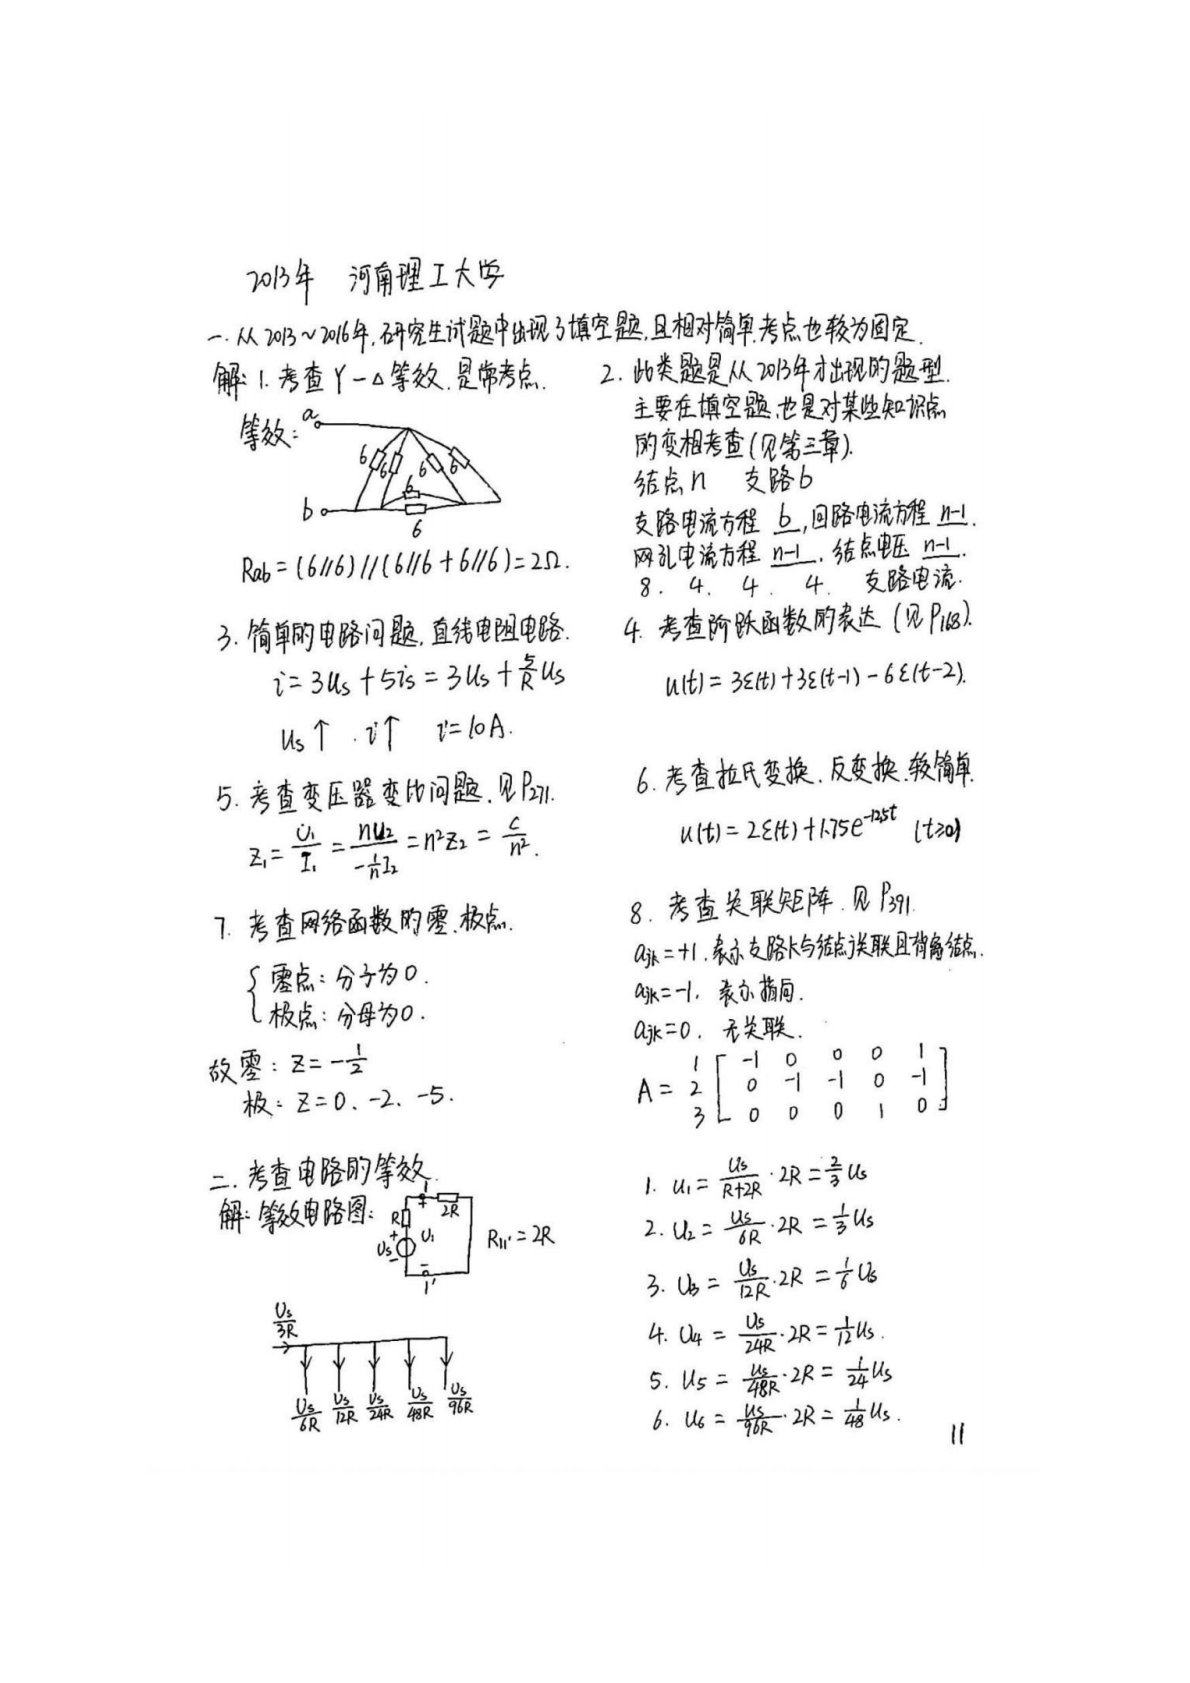 2013年 河南理工大学
一.从2013~2016年,研究生试题中出现了填空题,且相对简单,考点也较为固定.
解: 1. 考查Y-Δ等效.是常考点.
等效: a
6 6 6 6
6
b
6
Rab=(6//6)//(6//6+6//6)=2Ω.
2. 此类题是从2013年才出现的题型.
主要在填空题,也是对某些知识点
的变相考查(见第三章).
结点n 支路b
支路电流方程 b ,回路电流方程 n-1.
网孔电流方程 n-1 . 结点电压 n-1.
8. 4. 4. 4. 支路电流.
3. 简单的电路问题,直线电阻电路.
i=3us+5is=3us+5/R us
us↑ .i↑ i=10A.
4. 考查阶跃函数的表达 (见P168).
u(t)=3ε(t)+3ε(t-1)-6ε(t-2).
5. 考查变压器变比问题.见P271.
Z1=U̇1/I1=nu2/(-1/n I2)=n²Z2=C/n².
6. 考查拉氏变换.反变换.较简单.
u(t)=2ε(t)+1.75e^-12.5t (t≥0)
7. 考查网络函数的零.极点.
{零点: 分子为0.
极点: 分母为0.
故零: Z=-1/2
极: Z=0、-2、-5.
8. 考查关联矩阵.见P391.
ajk=+1.表示支路k与结点j关联且背离结点.
ajk=-1. 表示指向.
ajk=0. 无关联.
1 [-1 0 0 0 1]
A= 2 [0 -1 -1 0 -1]
3 [0 0 0 1 0]
二.考查电路的等效.
解:等效电路图:
1 + 2R
R + Us - U1 - 1'
R11'=2R
Us/3R
Us/6R Us/12R Us/24R Us/48R Us/96R
1. u1=Us/(R+2R)·2R=2/3 us
2. u2=us/6R·2R=1/3 us
3. U3=Us/12R·2R=1/6 Us
4. U4=Us/24R·2R=1/12 us.
5. us=us/48R·2R=1/24 us
6. u6=us/96R·2R=1/48 us.
11